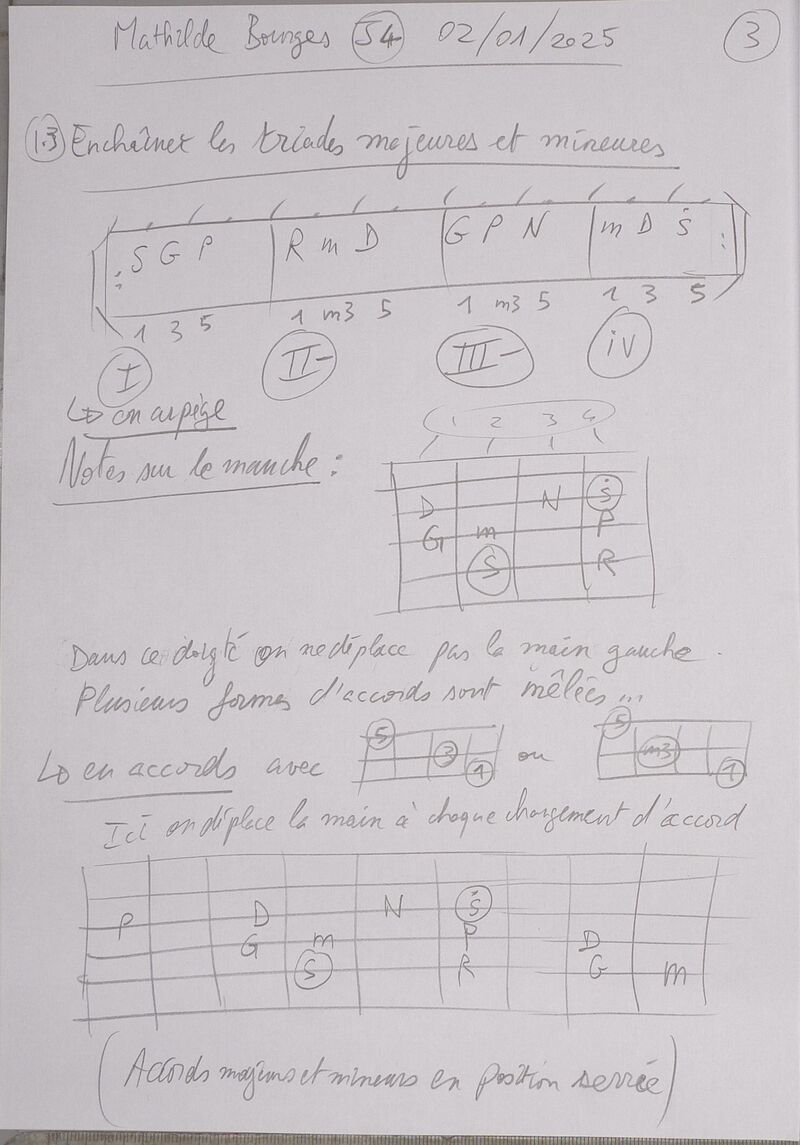 Mathilde Bourges S4 02/01/2025 3
1.3 Enchaîner les triades majeures et mineures
: S G P | R m D | G P N | m D Ṡ :
1 3 5 1 m3 5 1 m3 5 1 3 5
I II- III- iv
↳ en arpège
1 2 3 4
Notes sur le manche :
D N Ṡ
G m P
S R
Dans ce doigté on ne déplace pas la main gauche.
Plusieurs formes d'accords sont mêlées...
↳ en accords avec 5 3 1 ou 5 m3 1
Ici on déplace la main à chaque changement d'accord
P D N Ṡ
G m P D
S R G m
(Accords majeurs et mineurs en position serrée)